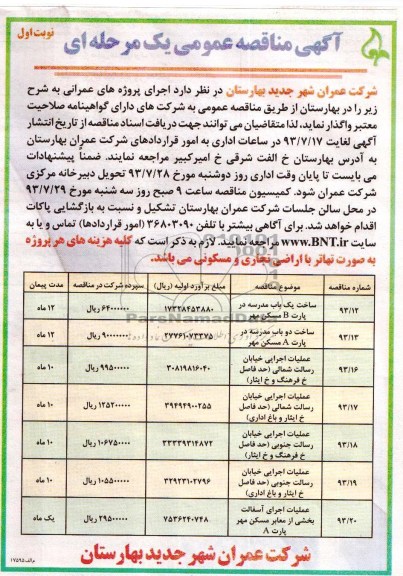 نوبت اول
آگهی مناقصه عمومی یک مرحله ای
شرکت عمران شهر جدید بهارستان در نظر دارد اجرای پروژه های عمرانی به شرح
زیر را در بهارستان از طریق مناقصه عمومی به شرکت های دارای گواهینامه صلاحیت
معتبر واگذار نماید، لذا متقاضیان می توانند جهت دریافت اسناد مناقصه از تاریخ انتشار
آگهی لغایت ۹۳/۷/۱۷ در ساعات اداری به امور قراردادهای شرکت عمران بهارستان
به آدرس بهارستان خ الفت شرقی خ امیرکبیر مراجعه نمایند. ضمناً پیشنهادات
می بایست تا پایان وقت اداری روز دوشنبه مورخ ۹۳/۷/۲۸ تحویل دبیرخانه مرکزی
شرکت عمران شود. کمیسیون مناقصه ساعت ۹ صبح روز سه شنبه مورخ ۹۳/۷/۲۹
در محل سالن جلسات شرکت عمران بهارستان تشکیل و نسبت به بازگشایی پاکات
اقدام خواهد شد. برای آگاهی بیشتر با تلفن ۳۶۸۰۳۰۹۰ (امور قراردادها) تماس و یا به
سایت www.BNT.ir مراجعه نمایید. لازم به ذکر است که کلیه هزینه های هر پروژه
به صورت تهاتر با اراضی تجاری و مسکونی می باشد.
شماره مناقصه موضوع مناقصه مبلغ برآورد اولیه (ریال) سپرده شرکت در مناقصه مدت پیمان
۹۳/۱۲ ساخت یک باب مدرسه در پارت B مسکن مهر ۱۷۳۲۸۴۵۳۸۸۰ ۶۴۰۰۰۰۰۰۰ ریال ۱۲ ماه
۹۳/۱۳ ساخت دو باب مدرسه در پارت A مسکن مهر ۲۷۷۶۱۰۷۳۳۷۵ ۹۰۰۰۰۰۰۰۰ ریال ۱۲ ماه
۹۳/۱۶ عملیات اجرایی خیابان رسالت شمالی (حد فاصل خ فرهنگ و خ ایثار) ۳۰۸۱۹۸۱۶۰۴۰ ۹۹۵۰۰۰۰۰۰ ریال ۱۰ ماه
۹۳/۱۷ عملیات اجرایی خیابان رسالت شمالی (حد فاصل خ ایثار و باغ اداری) ۳۹۴۹۴۹۰۰۲۵۵ ۱۲۵۲۰۰۰۰۰۰ ریال ۱۰ ماه
۹۳/۱۸ عملیات اجرایی خیابان رسالت جنوبی (حد فاصل خ فرهنگ و خ ایثار) ۳۳۳۳۹۳۱۴۸۷۲ ۱۰۶۷۵۰۰۰۰۰ ریال ۱۰ ماه
۹۳/۱۹ عملیات اجرایی خیابان رسالت جنوبی (حد فاصل خ ایثار و باغ اداری) ۳۲۹۲۳۱۰۲۷۹۶ ۱۰۵۵۰۰۰۰۰۰ ریال ۱۰ ماه
۹۳/۲۰ عملیات اجرای آسفالت بخشی از معابر مسکن مهر پارت A ۷۵۳۶۲۴۰۷۴۸ ۲۹۵۰۰۰۰۰۰ ریال یک ماه
شرکت عمران شهر جدید بهارستان
م الف ۱۷۵۹۵